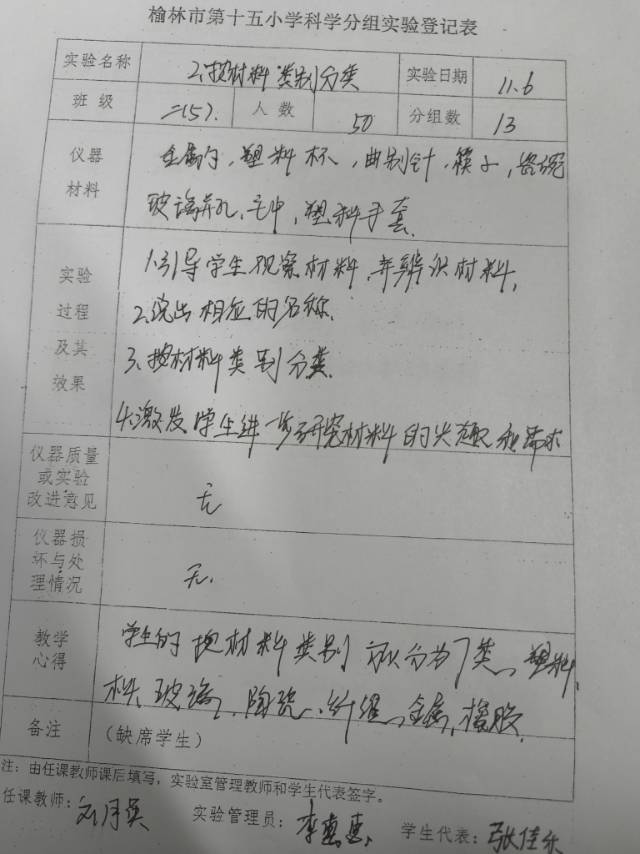 榆林市第十五小学科学分组实验登记表
实验名称 2.按材料类别分类 实验日期 11.6
班级 二(5). 人数 50 分组数 13
仪器材料 金属勺,塑料杯,曲别针,筷子,瓷碗
玻璃 毛巾,塑料手套.
实验过程及其效果 1.引导学生观察材料,并辨识材料,
2.说出相应的名称.
3.按材料类别分类.
4.激发学生进一步研究材料的兴趣和需求
仪器质量或实验改进意见 无
仪器损坏与处理情况 无.
教学心得 学生的按材料类别 分为7类、塑料,
木头、玻璃、陶瓷、纤维、金属,橡胶.
备注 (缺席学生)
注:由任课教师课后填写,实验室管理教师和学生代表签字。
任课教师:刘月英 实验管理员:李惠惠 学生代表:张佳乐